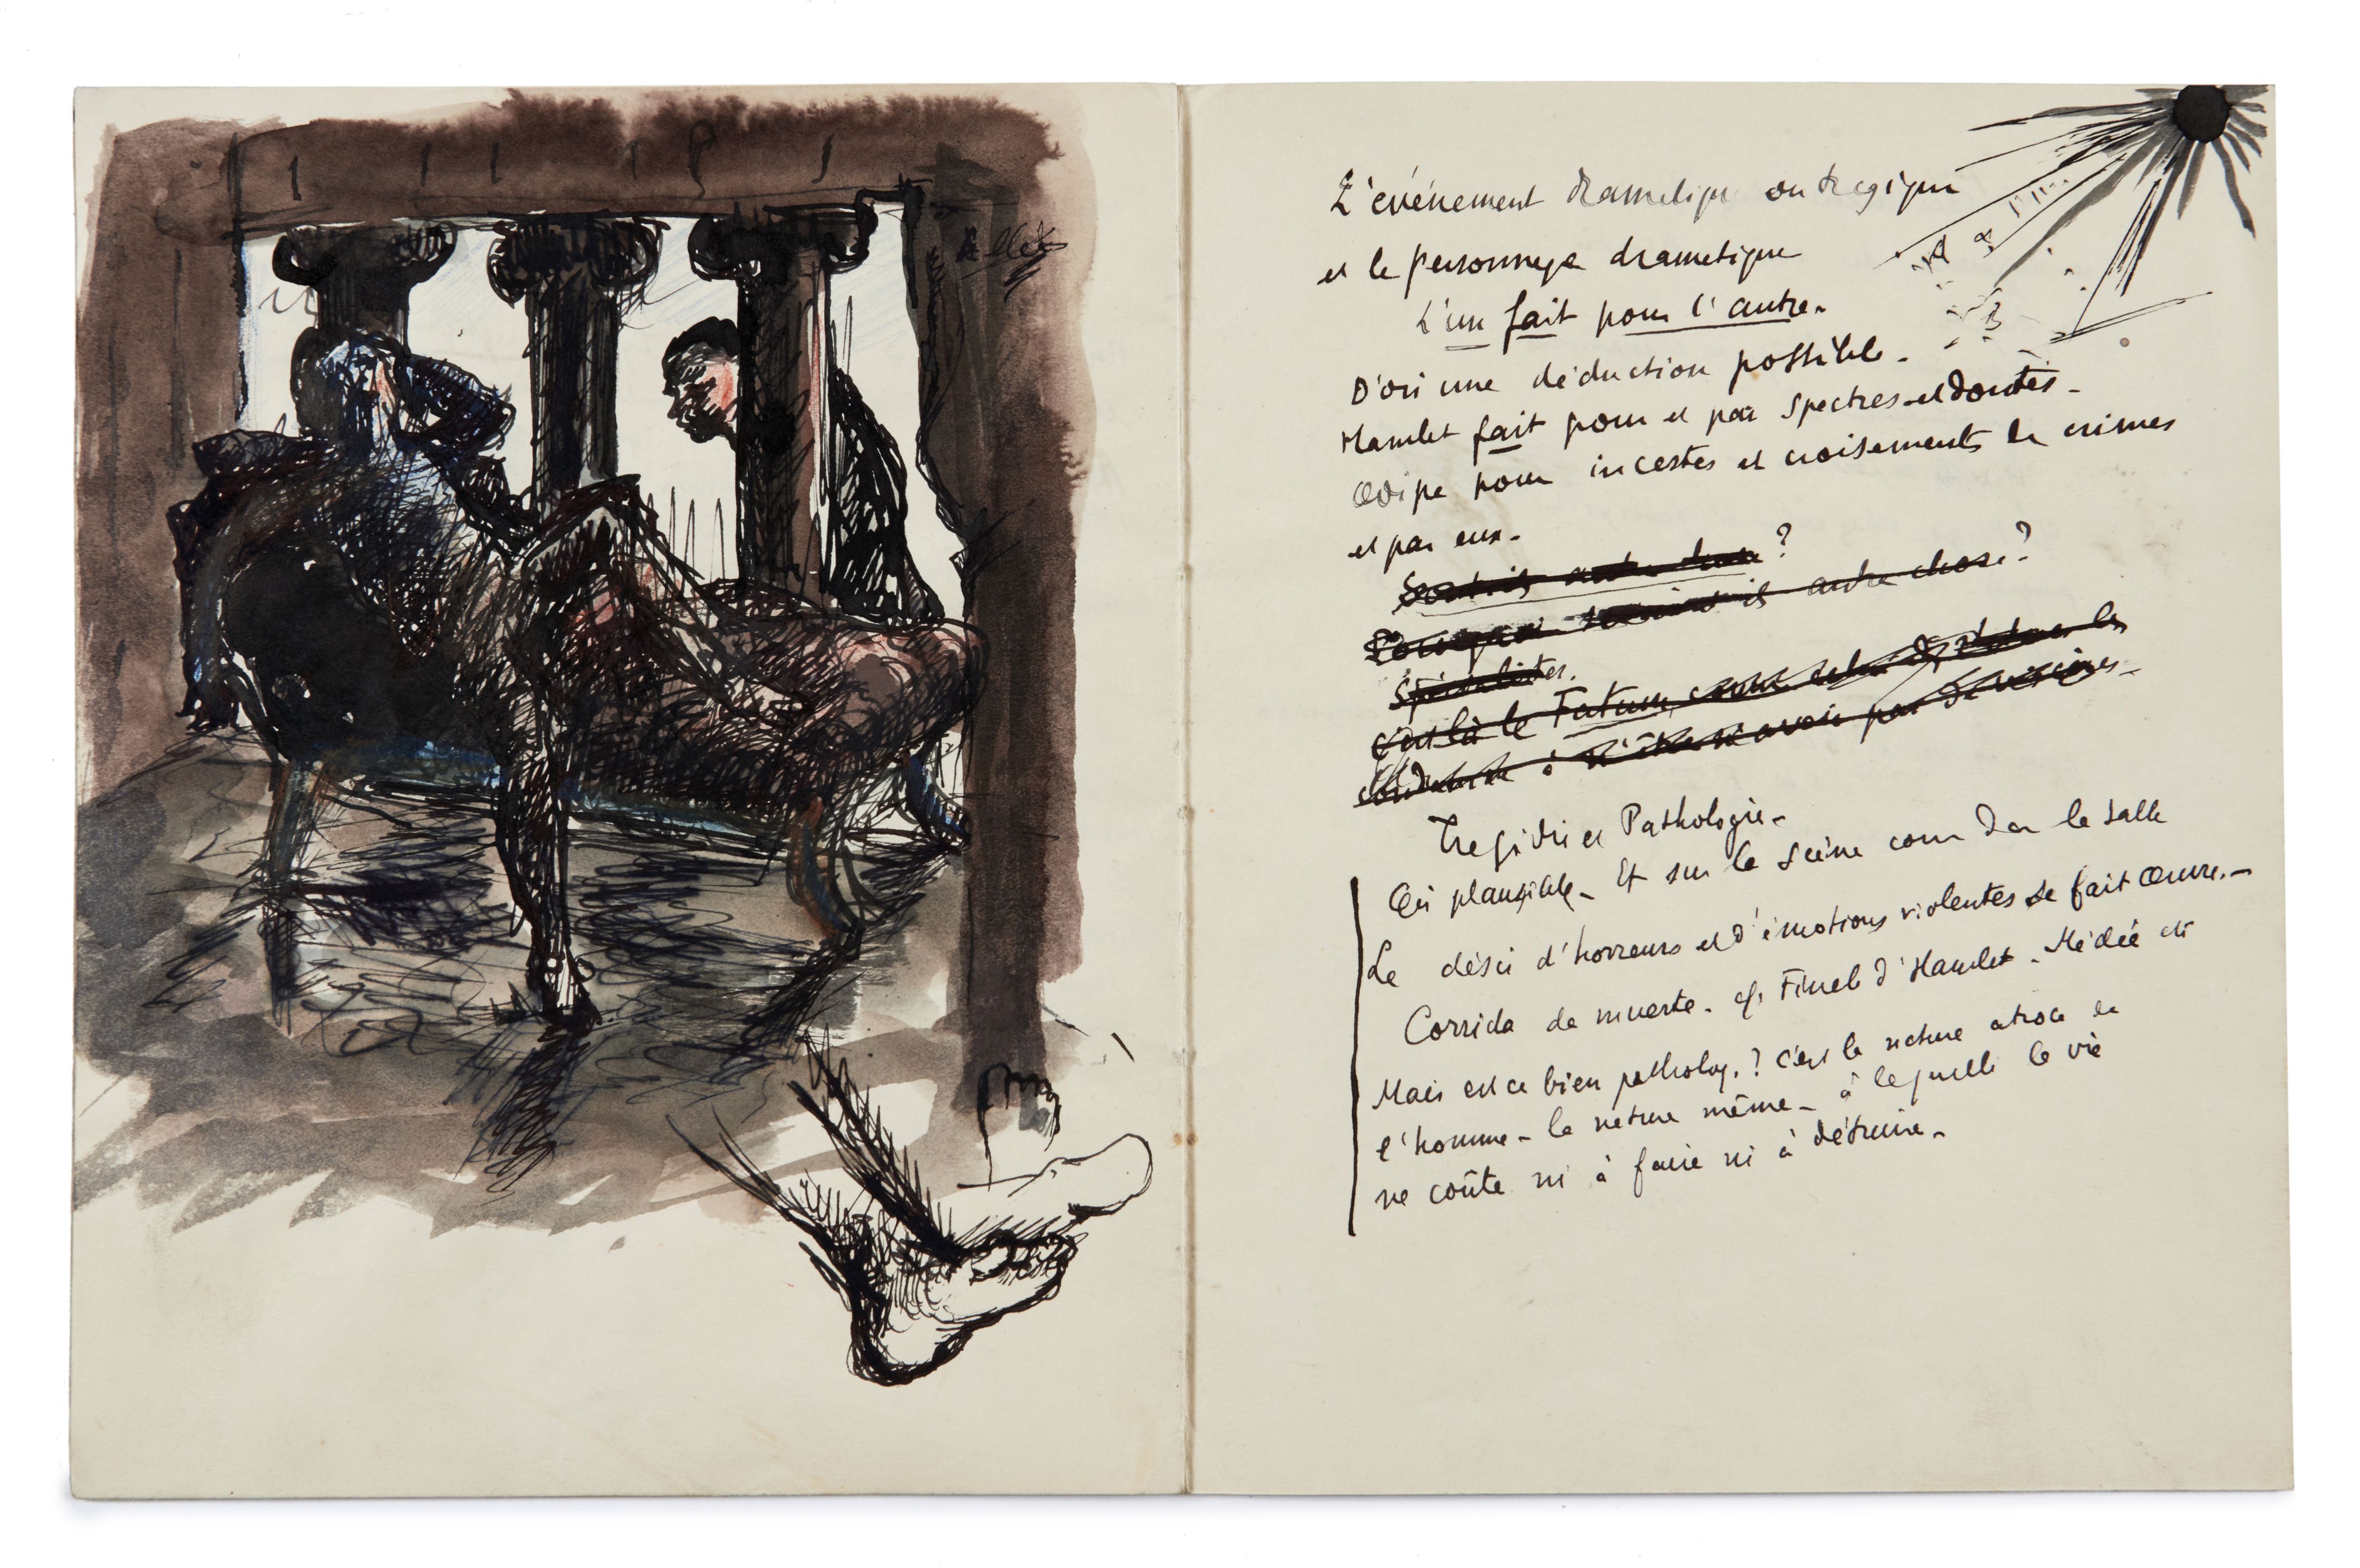 L'événement dramatique ou tragique
et le personnage dramatique
L'un fait pour l'autre.
D'où une déduction possible.
Hamlet fait pour et par spectres et doutes.
Œdipe pour incestes et croisements de crimes
et par eux.
Sont-ils autre chose ?
Pourquoi seraient-ils autre chose ?
Spécialités.
C'est là le Fatum, comme celui de les
à n'être n'avoir pas de
Tragédie et Pathologie.
Œi plausible. Et sur la scène comme dans la salle
Le désir d'horreurs et d'émotions violentes se fait Œuvre.
Corrida de muerte. cf. Final d'Hamlet. Médée etc
Mais est ce bien patholog. ? C'est la nature atroce de
l'homme - la nature même - à laquelle la vie
ne coûte ni à faire ni à détruire.